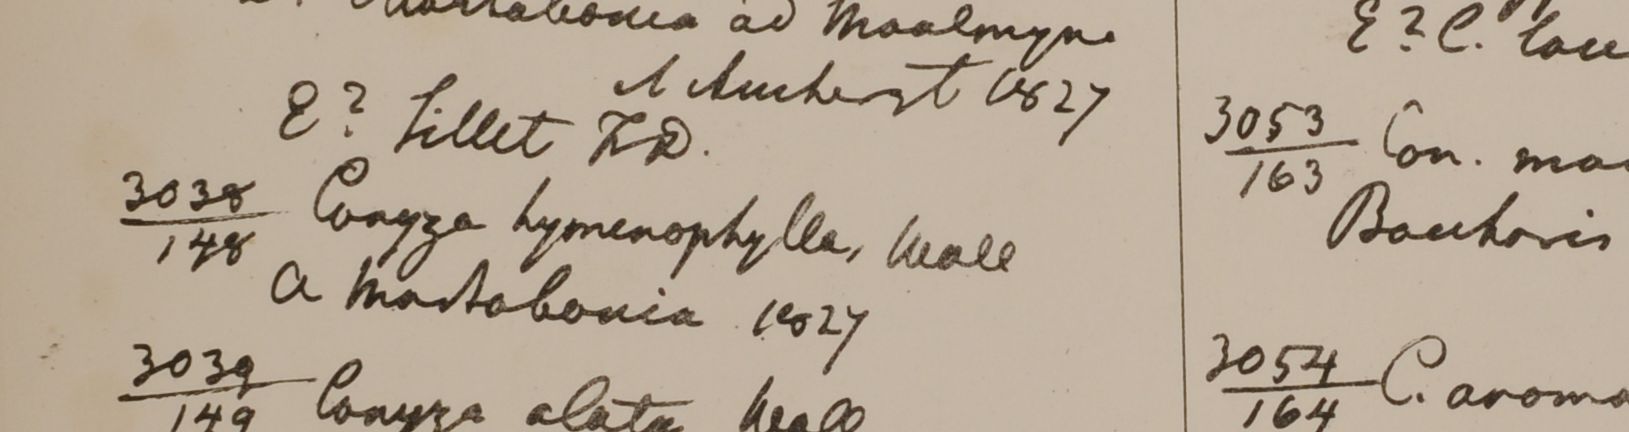 Martabania ad Moalmyne
& Amherst 1827
E? Sillet F.D.
3038/148 Conyza hymenophylla, Wall
a Martabania 1827
3039/149 Conyza alata Wall
E? C.
3053/163 Con.
Baccharis
3054/164 C. aroma